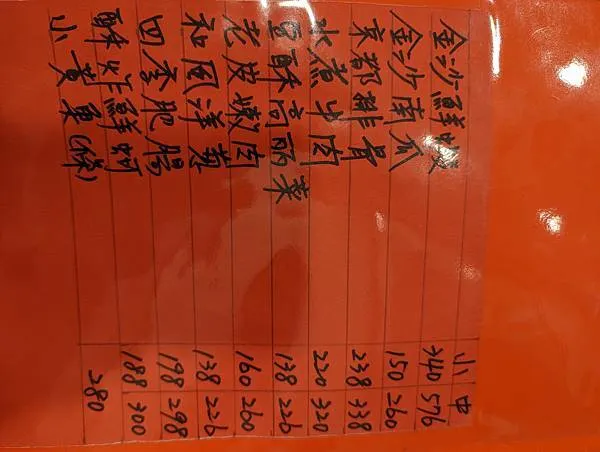 小 中
金沙鮮蝦 340 576
金沙南瓜 150 260
京都排骨 238 338
水煮牛肉 220 320
豆酥高丽菜 138 226
老皮嫩肉 160 260
和風洋蔥 138 226
四季肥腸 198 298
酥炸鮮蚵 188 300
小黃魚(條) 280